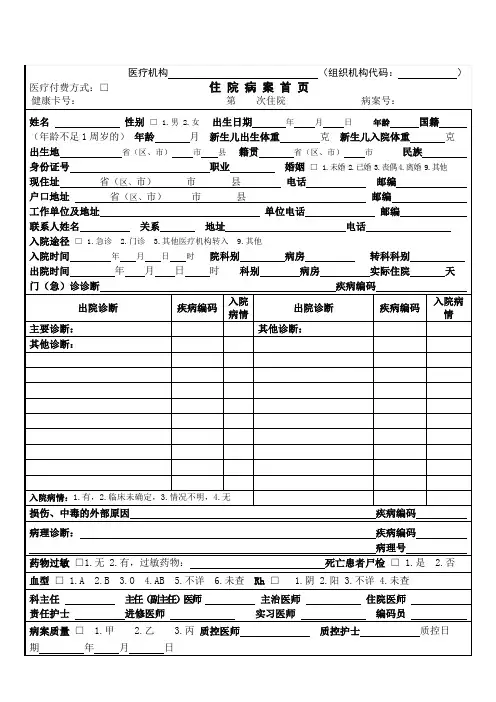 医疗机构 （组织机构代码： ）
医疗付费方式：□ 住 院 病 案 首 页
健康卡号： 第 次住院 病案号：
姓名 性别 □ 1.男 2.女 出生日期 年 月 日 年龄 国籍
（年龄不足1周岁的） 年龄 月 新生儿出生体重 克 新生儿入院体重 克
出生地 省（区、市） 市 县 籍贯 省（区、市） 市 民族
身份证号 职业 婚姻 □ 1.未婚 2.已婚 3.丧偶 4.离婚 9.其他
现住址 省（区、市） 市 县 电话 邮编
户口地址 省（区、市） 市 县 邮编
工作单位及地址 单位电话 邮编
联系人姓名 关系 地址 电话
入院途径 □ 1.急诊 2.门诊 3.其他医疗机构转入 9.其他
入院时间 年 月 日 时 院科别 病房 转科科别
出院时间 年 月 日 时 科别 病房 实际住院 天
门（急）诊诊断 疾病编码
出院诊断 疾病编码 入院病情 出院诊断 疾病编码 入院病情
主要诊断： 其他诊断：
其他诊断：
入院病情：1.有，2.临床未确定，3.情况不明，4.无
损伤、中毒的外部原因 疾病编码
病理诊断： 疾病编码
病理号
药物过敏 □1.无 2.有，过敏药物： 死亡患者尸检 □ 1.是 2.否
血型 □ 1.A 2.B 3.O 4.AB 5.不详 6.未查 Rh □ 1.阴 2.阳 3.不详 4.未查
科主任 主任（副主任）医师 主治医师 住院医师
责任护士 进修医师 实习医师 编码员
病案质量 □ 1.甲 2.乙 3.丙 质控医师 质控护士 质控日
期 年 月 日